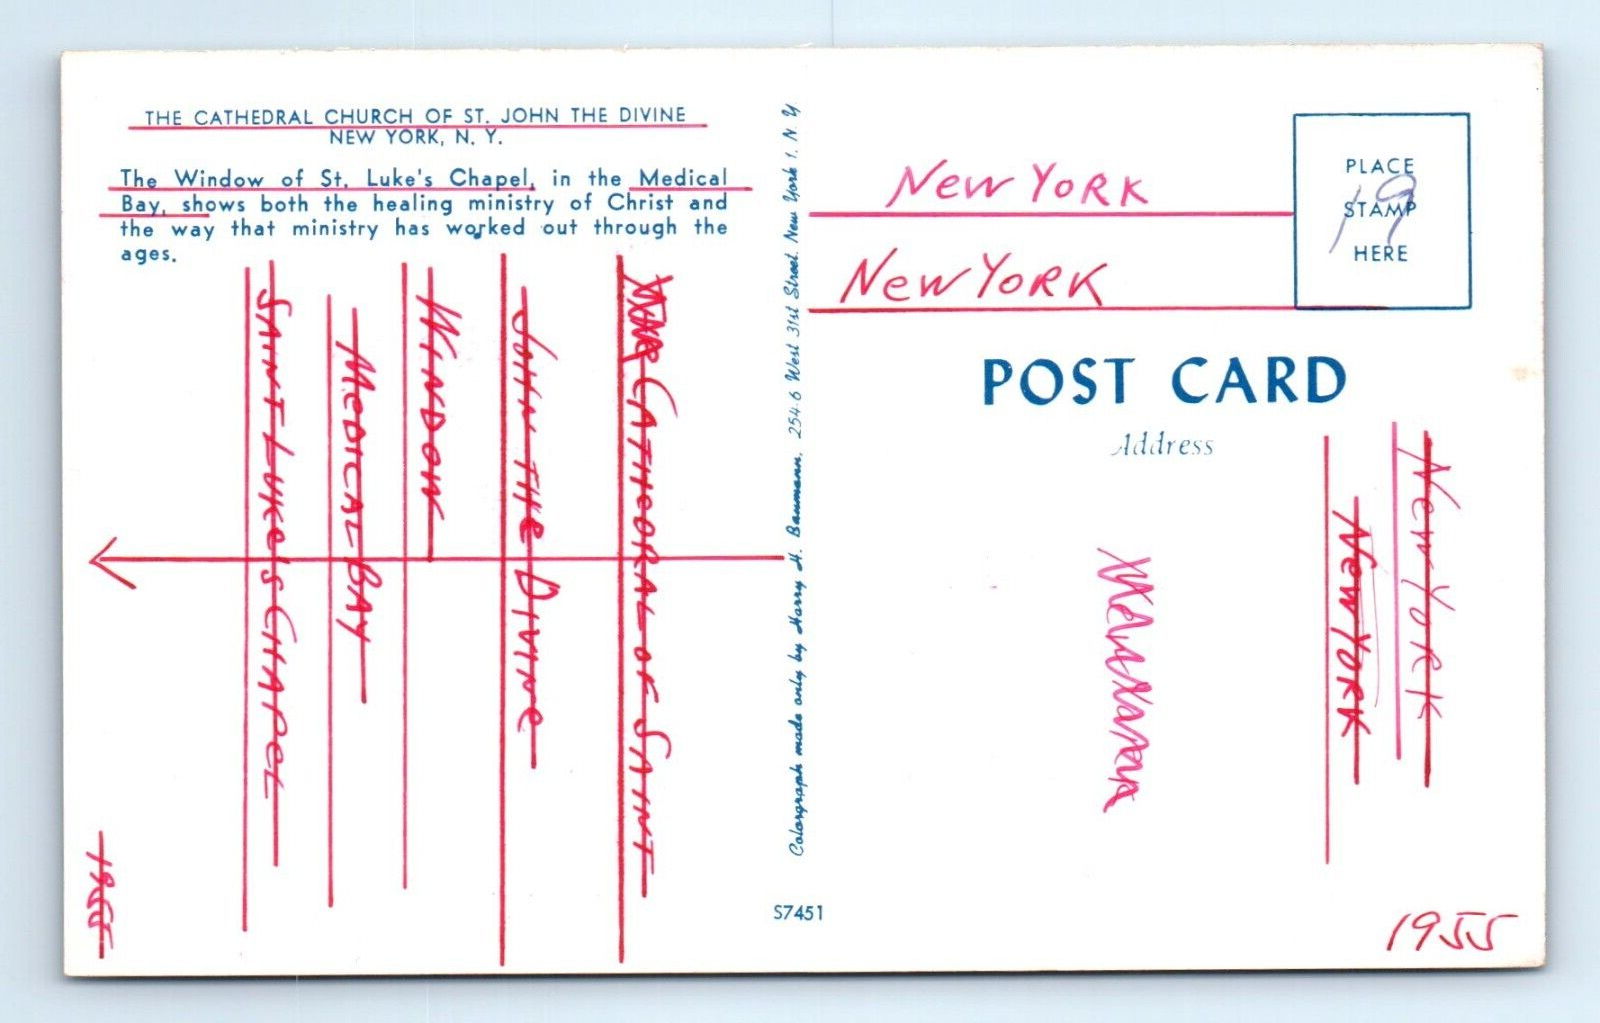 THE CATHEDRAL CHURCH OF ST. JOHN THE DIVINE
NEW YORK, N. Y.
The Window of St. Luke's Chapel, in the Medical
Bay, shows both the healing ministry of Christ and
the way that ministry has worked out through the
ages.
CATHEDRAL OF SAINT
JOHN THE DIVINE
WINDOW
MEDICAL BAY
SAINT LUKE'S CHAPEL
1955
Colorgraph made only by Harry H. Baumann, 254-6 West 31st Street, New York 1, N Y
S7451
NEW YORK
NEW YORK
PLACE
STAMP
HERE
19
POST CARD
Address
NEW YORK
NEW YORK
1955